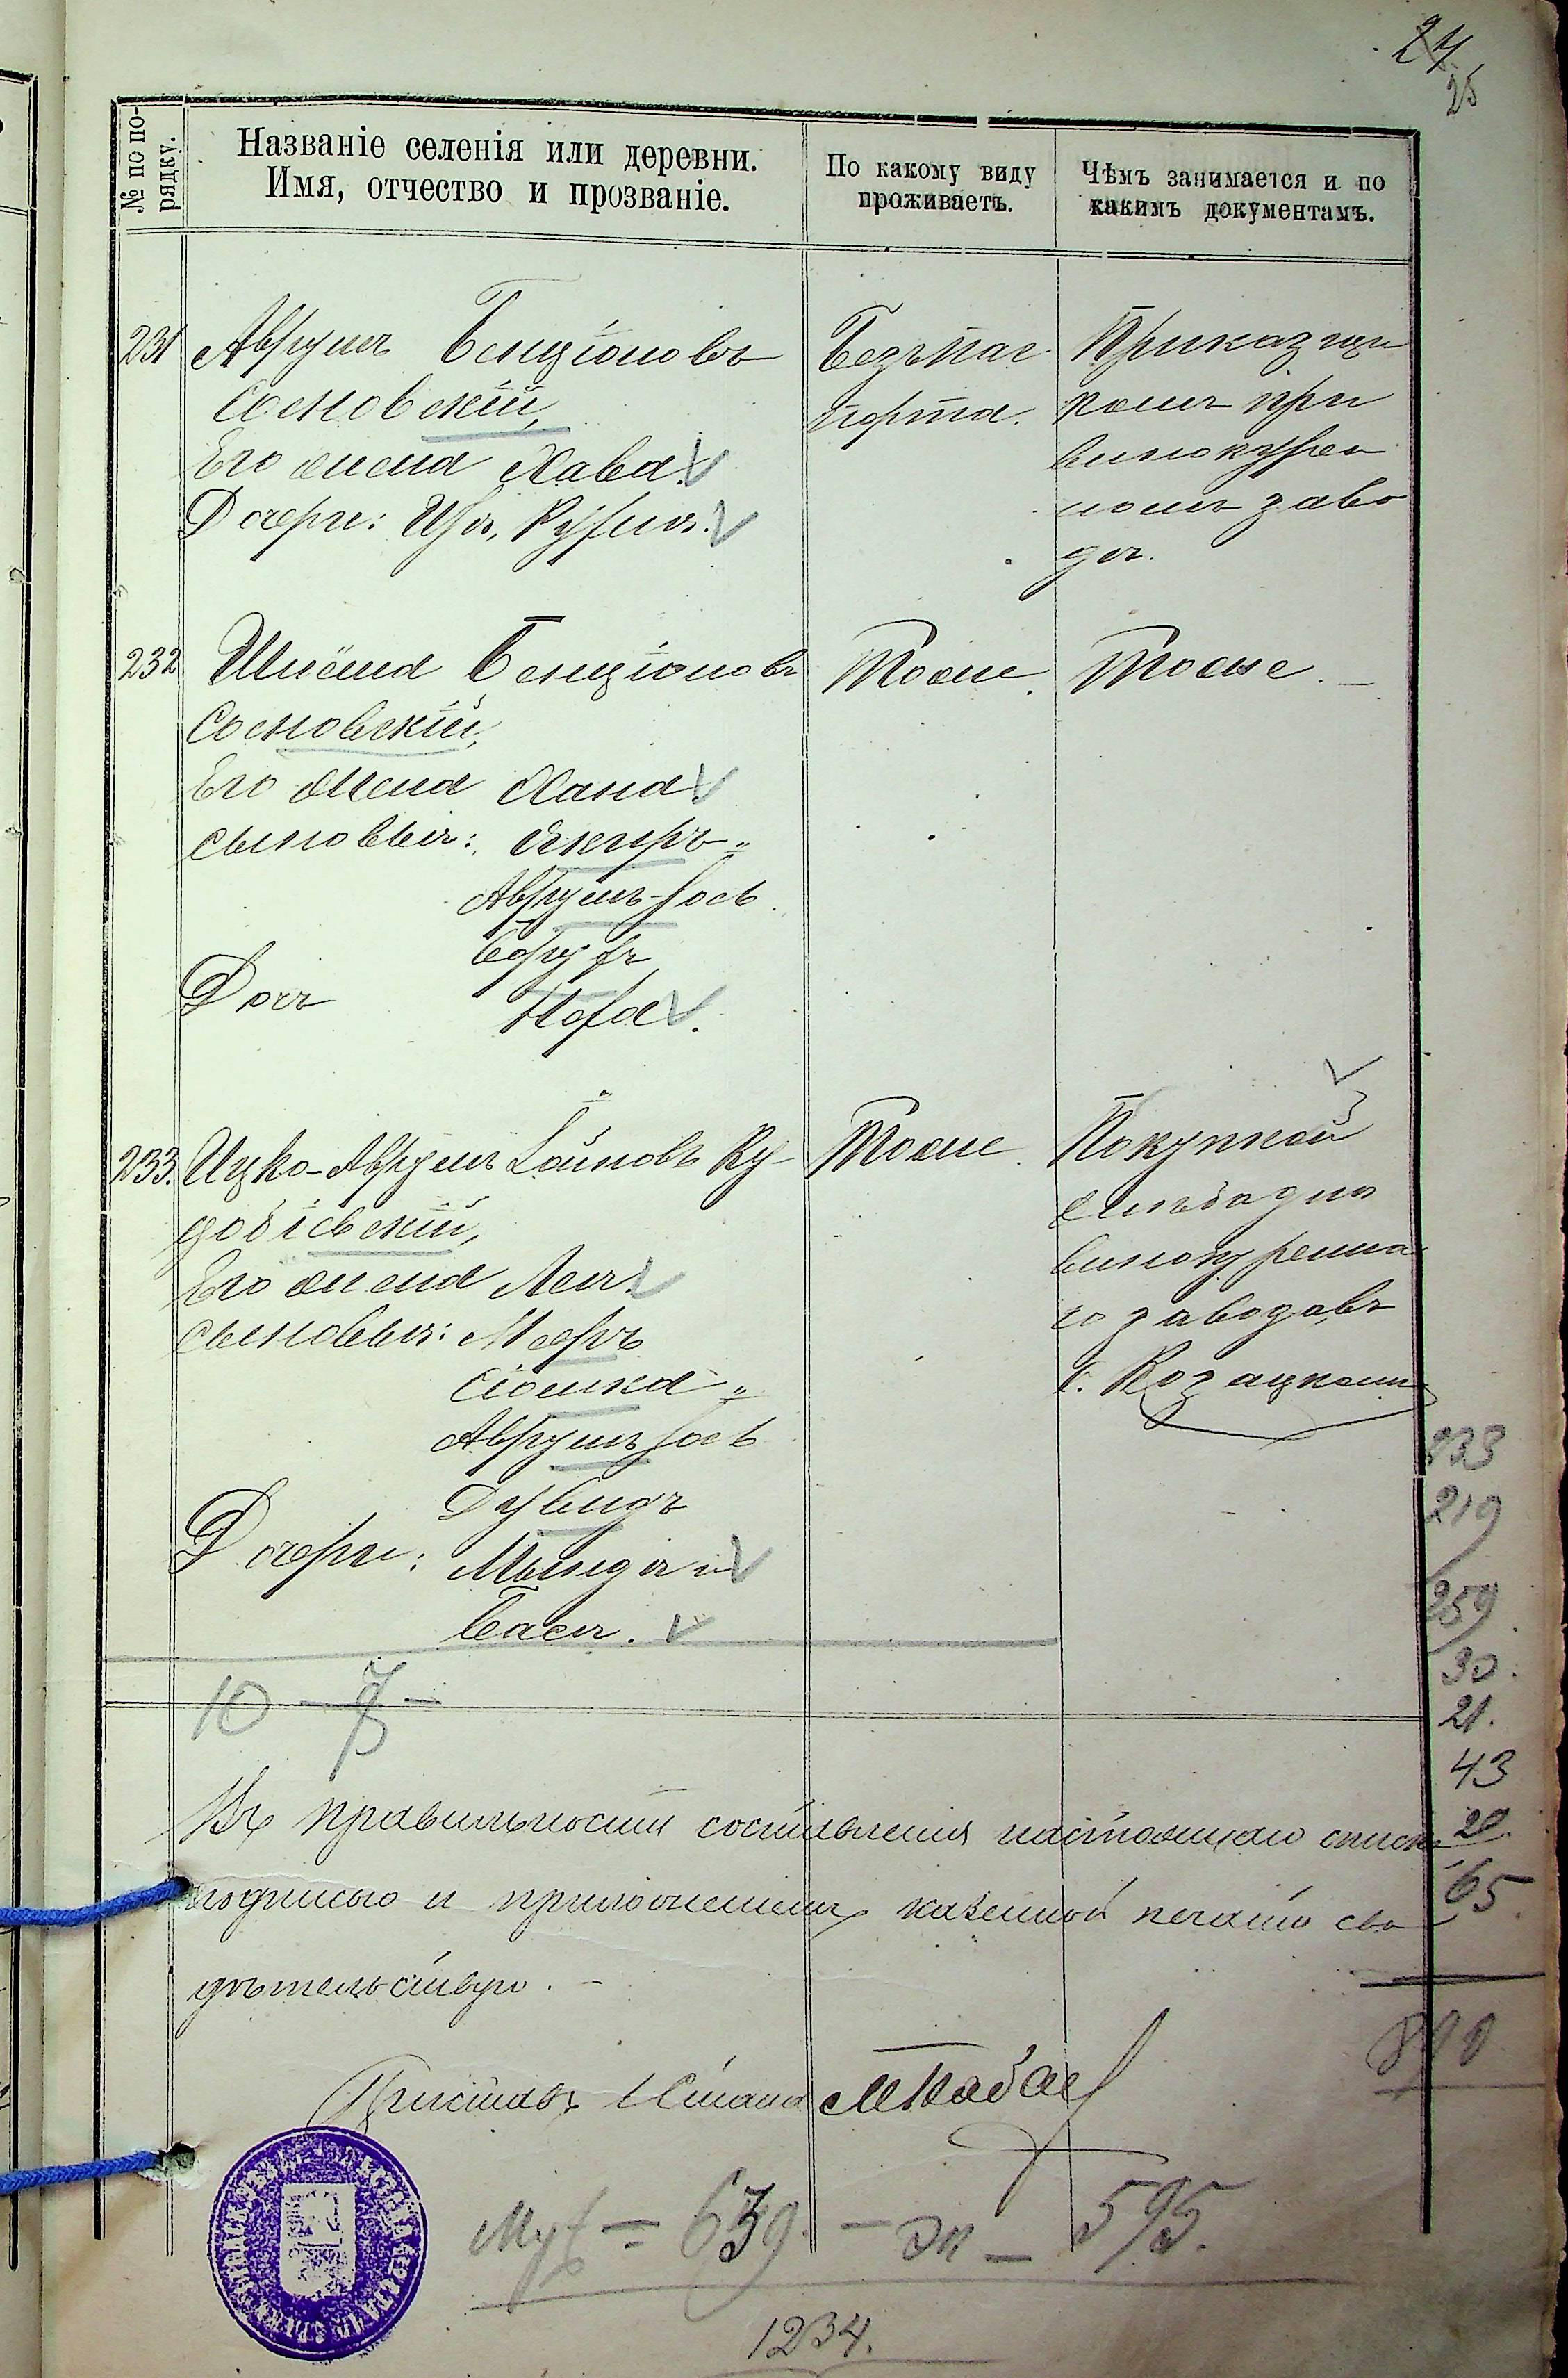 24
25
№ по по-
рядку.
Названіе селенія или деревни.
Имя, отчество и прозваніе.
По какому виду
проживаетъ.
Чѣмъ занимается и по
какимъ документамъ.
231 Аврумъ Бенціоновъ
Сосновскій,
Его жена Хава.
Дочери: Рухля.
Безъ пас
порта.
Приказчи
комъ при
винокурен
номъ заво
дѣ.
232 Шлёма Бенціоновъ
Сосновскій,
Его жена Хана
сыновья:
Аврумъ-Іось
Борухъ
Дочь
Тоже.
Тоже. —
233. Ицко-Аврумъ Ку-
скій,
Его жена Лея.
сыновья: Мееръ
Сіомка
Аврумъ Іось
Дувидъ
Дочери: Мындля и
Бася.
Тоже.
Покупкой
хлѣба для
винокуренна
го завода въ
с. Козацкомъ
10 — 7 —
233
219
259
30.
21.
43
20.
65
890
Въ правильности составленія настоящаго списка
подписью и приложеніемъ казенной печати сви
дѣтельствую. —
Приставъ 1 Стана
Муж — 639. — жн — 595.
1234.